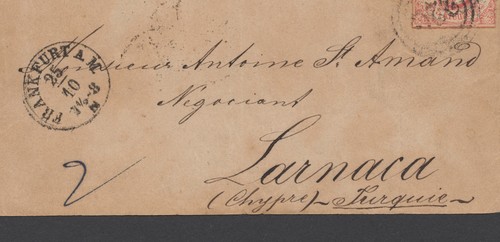 FRANKFURT A. M.
25
10
N. 7-8 N
Monsieur Antoine St. Amand
Negociant
Larnaca
(Chypre) Turquie
2